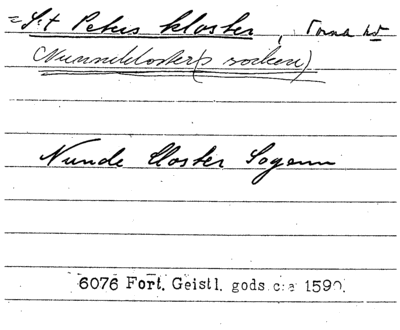 = S:t Peters kloster, Torna hd
(Nunneklosters socken)
Nunde Closter Sogenn
6076 Fort. Geistl. gods c:a 1590.